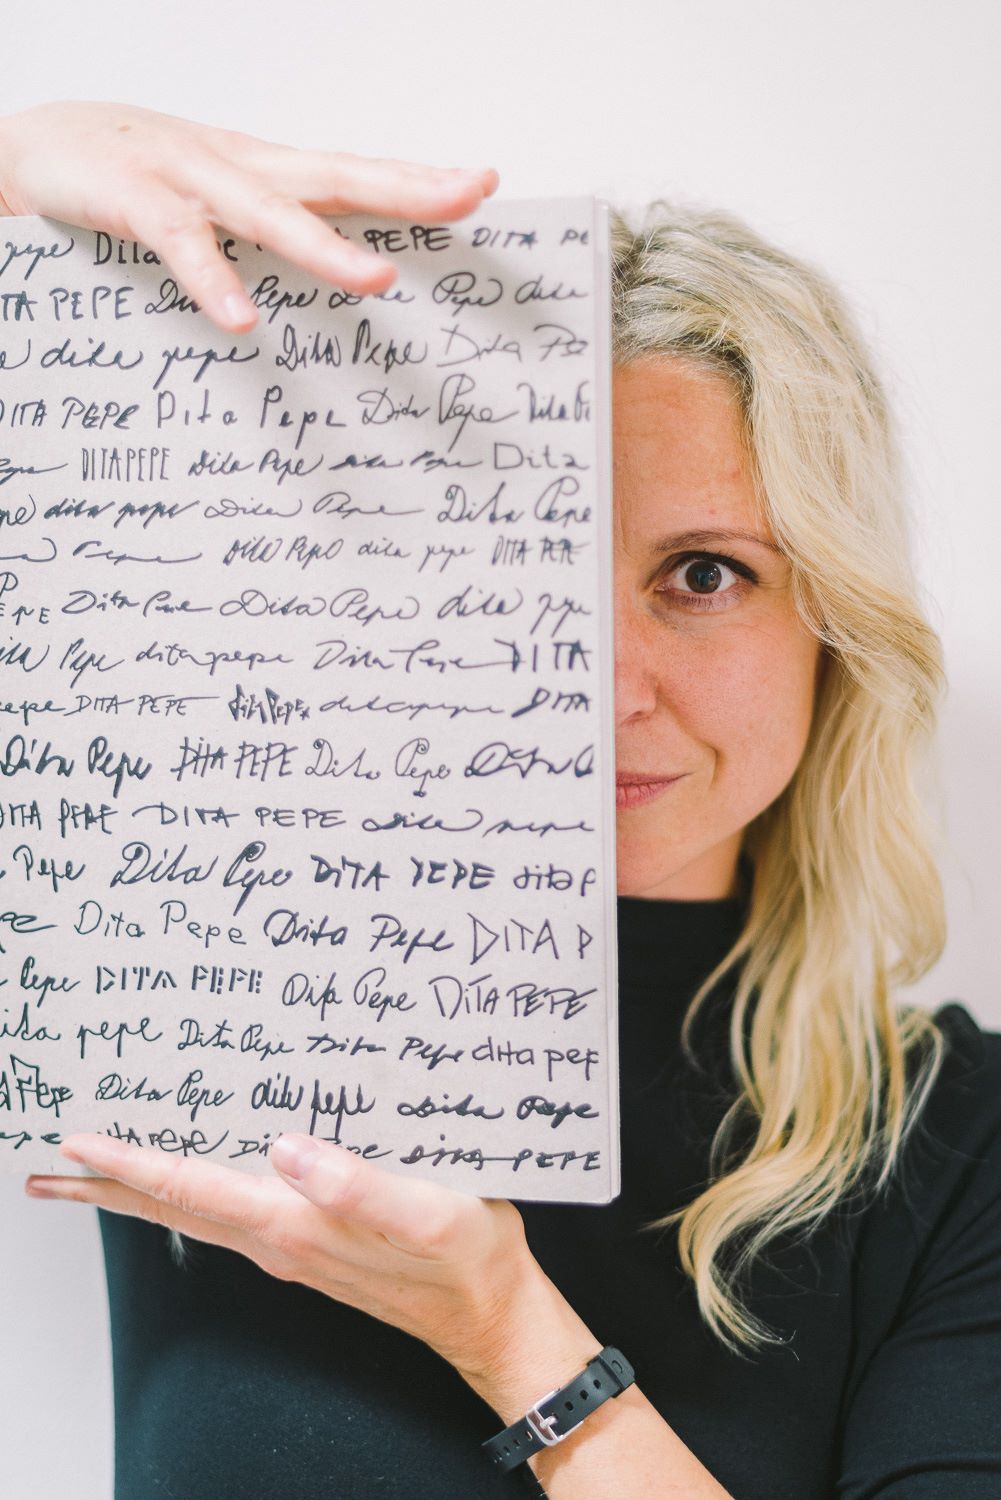 pepe Dita PEPE DITA
DITA PEPE Dita Pepe Dita Pepe dita
dita pepe Dita Pepe Dita
DITA PEPE Dita Pepe Dita Pepe Dita
DITA PEPE Dita Pepe dita Pepe Dita
dita pepe Dita Pepe Dita Pepe
Pepe Dita Pepo dita pepe DITA PEPE
Dita Pepe Dita Pepe dita pepe
Pepe dita pepe Dita Pepe DITA
DITA PEPE Dita Pepe dita pepe DITA
Dita Pepe DITA PEPE Dita Pepe Dita
DITA PEPE DITA PEPE Dita pepe
Pepe Dita Pepe DITA PEPE dita
Dita Pepe Dita Pepe DITA
Pepe DITA PEPE Dita Pepe DITA PEPE
pepe Dita Pepe Dita Pepe dita
Pepe Dita Pepe dita pepe Dita Pepe
PEPE DITA PEPE